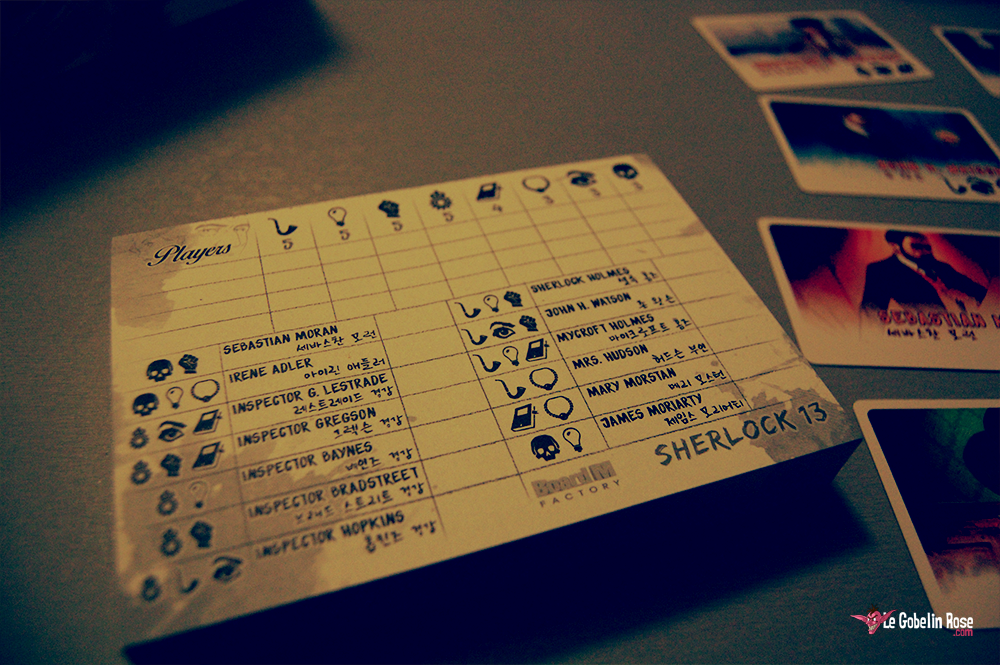 Players
5 5 5 5 4 3 3 3
SEBASTIAN MORAN
세바스찬 모런
IRENE ADLER
아이린 애들러
INSPECTOR G. LESTRADE
레스트레이드 경감
INSPECTOR GREGSON
그렉슨 경감
INSPECTOR BAYNES
베인즈 경감
INSPECTOR BRADSTREET
브래드 스트리트 경감
INSPECTOR HOPKINS
홉킨즈 경감
SHERLOCK HOLMES
셜록 홈즈
JOHN H. WATSON
존 왓슨
MYCROFT HOLMES
마이크로프트 홈즈
MRS. HUDSON
허드슨 부인
MARY MORSTAN
메리 모스턴
JAMES MORIARTY
제임스 모리어티
Board M
FACTORY
SHERLOCK 13
SEBASTIAN
세바스찬 모런
Le Gobelin Rose
.com